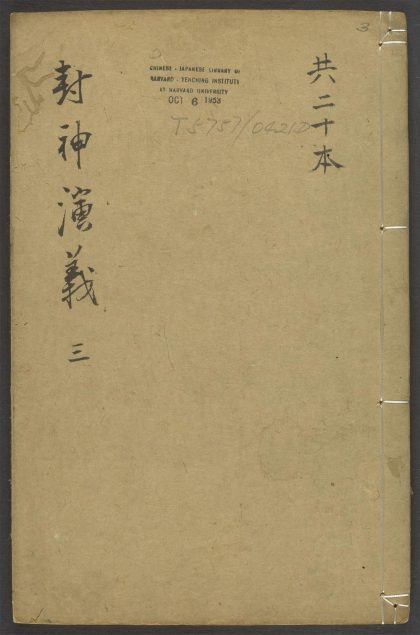 共二十本
3
CHINESE - JAPANESE LIBRARY OF
HARVARD - YENCHING INSTITUTE
AT HARVARD UNIVERSITY
OCT 6 1953
封神演義 三